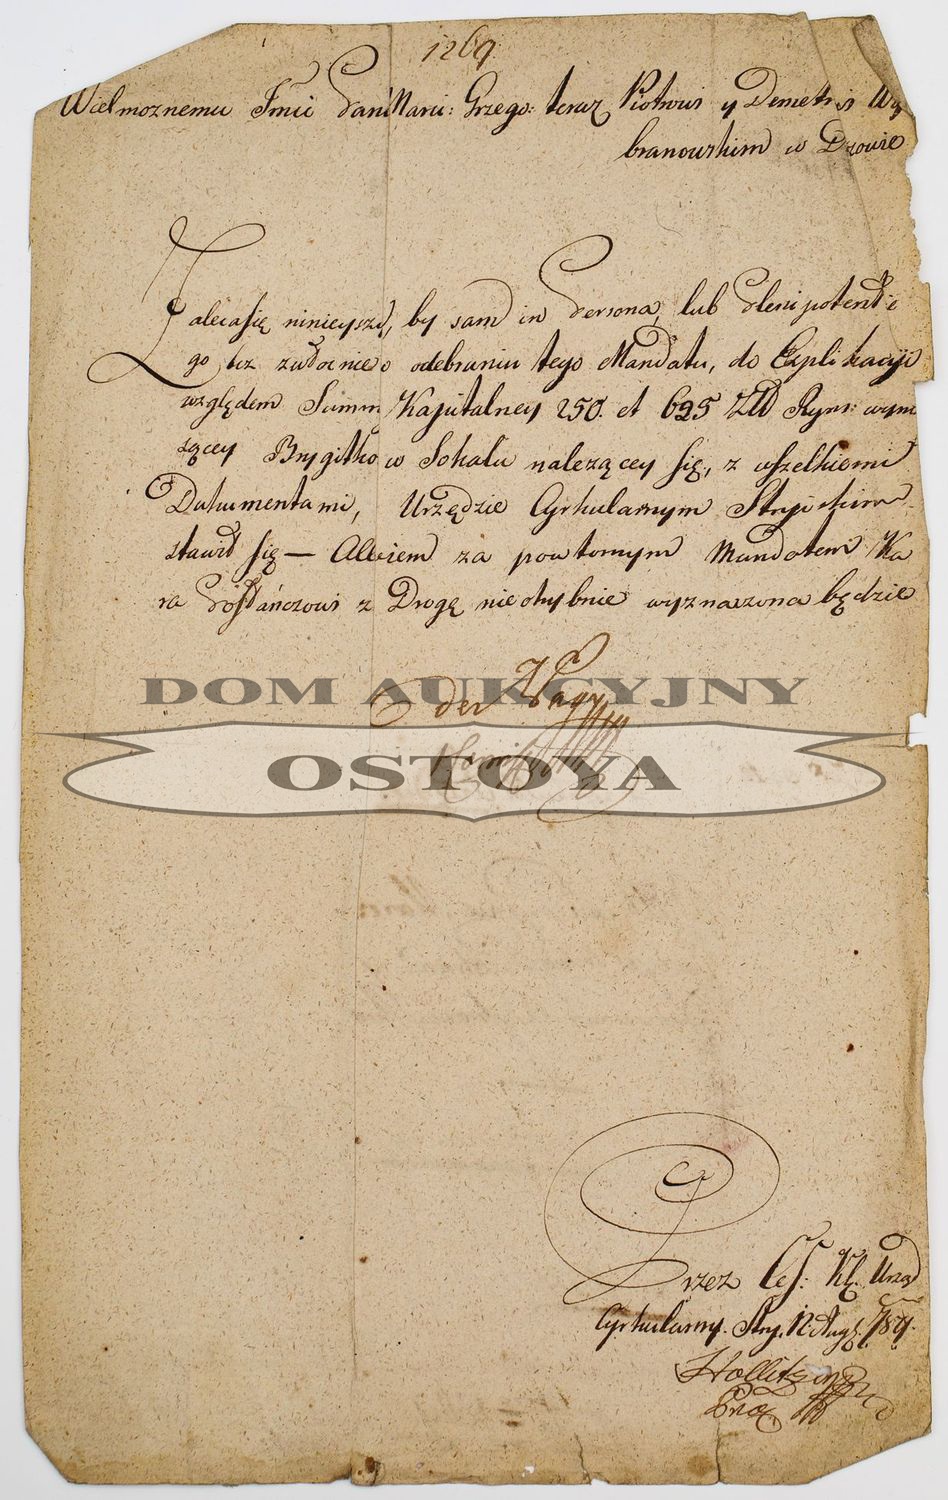 1269
Wielmoznemu Jmci Pani Marci: Grzego: teraz Piotrowi y Demetri Wy
branowskim w Dzowie
Zaleca się ninieyszy, by sam in Persona, lub Plenipotent
go bez odebraniu tego Mandatu, do Explikacyi
względem Summ Kapitalney 250 et 695 Ryns:
Brygitko w Sokalu nalezącey się, z wszelkiemi
Dokumentami, Urzędzie Cyrkularnym Stryiskim
stawił się — Alexiem za powtornym Mandatem Ka
ra Posłańczowi z Drogę nieochybnie wyznaczona będzie
der Vagy
DOM AUKCYJNY
OSTOYA
Przez Ces: Kl. Urząd
Cyrkularny. Stry. 12. Aug. 789.